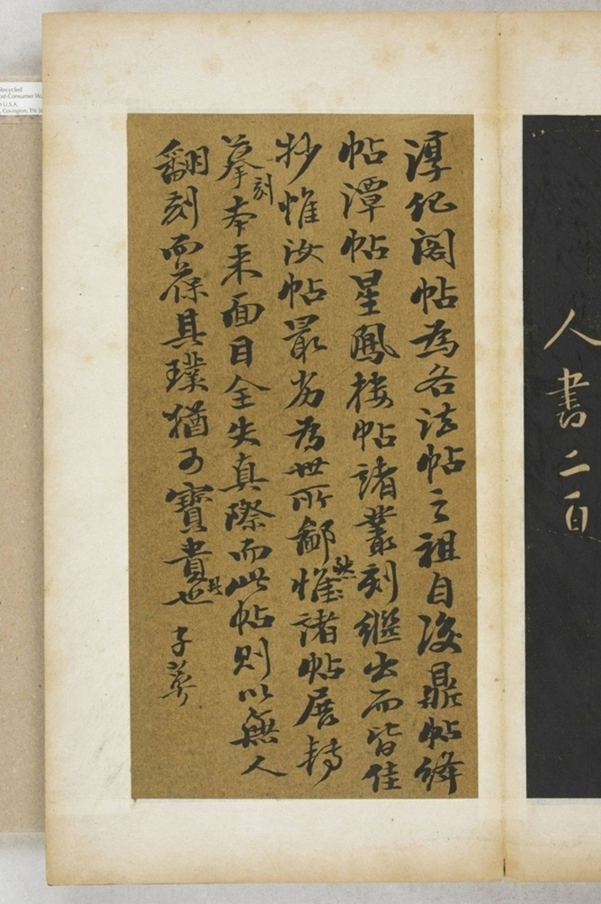 人書二百
淳化閣帖為各法帖之祖自後鼎帖絳
帖潭帖星鳳樓帖諸叢刻繼出而皆佳
妙惟汝帖最劣為世所鄙然惟諸帖展轉
摹刻本來面目全失真際而此帖則以無人
翻刻而葆其璞猶可寶貴也 子萼
Recycled
U.S.A.
Covington, TN